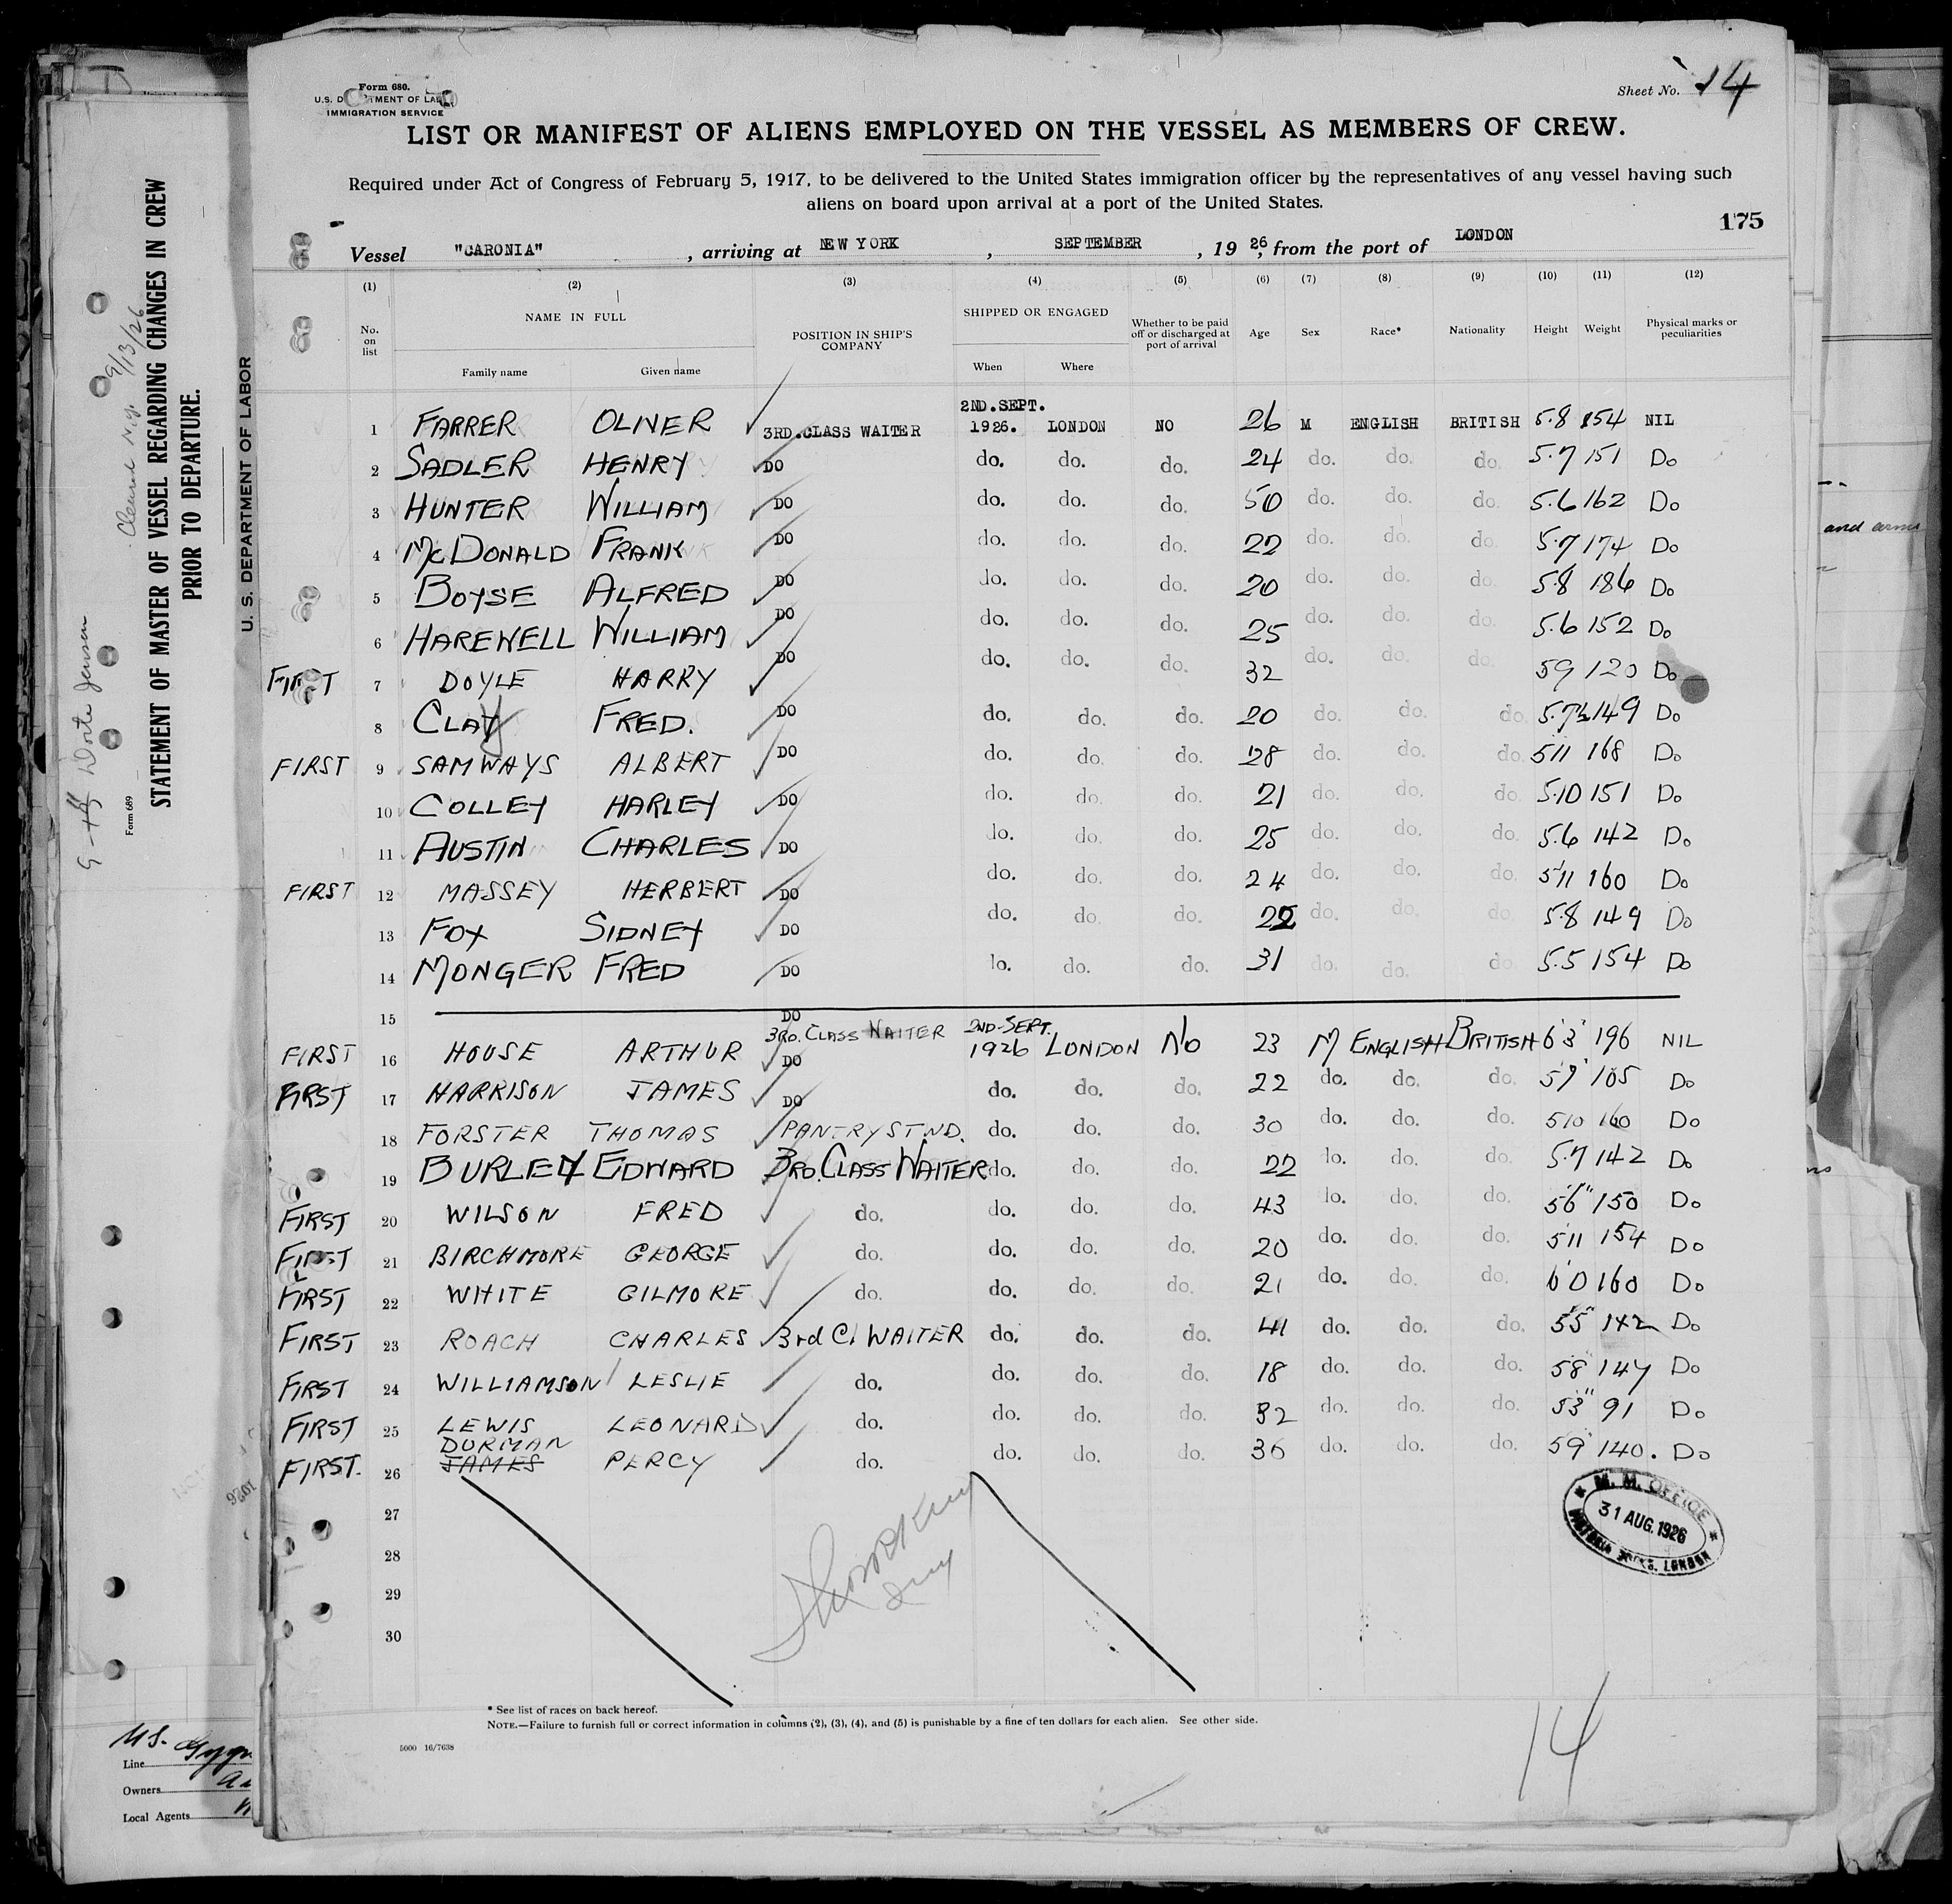 Form 680.
U.S. DEPARTMENT OF LABOR
IMMIGRATION SERVICE
Sheet No. 14
LIST OR MANIFEST OF ALIENS EMPLOYED ON THE VESSEL AS MEMBERS OF CREW.
Required under Act of Congress of February 5, 1917, to be delivered to the United States immigration officer by the representatives of any vessel having such
aliens on board upon arrival at a port of the United States.
175
Vessel "CARONIA", arriving at NEW YORK, SEPTEMBER, 1926, from the port of LONDON
(1) (2) (3) (4) (5) (6) (7) (8) (9) (10) (11) (12)
No. on list NAME IN FULL Family name Given name POSITION IN SHIP'S COMPANY SHIPPED OR ENGAGED When Where Whether to be paid off or discharged at port of arrival Age Sex Race* Nationality Height Weight Physical marks or peculiarities
1 FARRER OLIVER 3RD.CLASS WAITER 2ND.SEPT. 1926. LONDON NO 26 M ENGLISH BRITISH 5.8 154 NIL
2 SADLER HENRY DO do. do. do. 24 do. do. do. 5.7 151 Do
3 HUNTER WILLIAM DO do. do. do. 50 do. do. do. 5.6 162 Do
4 McDONALD FRANK DO do. do. do. 22 do. do. do. 5.7 174 Do
5 BOYSE ALFRED DO do. do. do. 20 do. do. do. 5.8 186 Do
6 HAREWELL WILLIAM DO do. do. do. 25 do. do. do. 5.6 152 Do
FIRST 7 DOYLE HARRY DO do. do. do. 32 do. do. do. 59 120 Do
8 CLAY FRED. DO do. do. do. 20 do. do. do. 5.7½ 149 Do
FIRST 9 SAMWAYS ALBERT DO do. do. do. 28 do. do. do. 511 168 Do
10 COLLEY HARLEY DO do. do. do. 21 do. do. do. 5.10 151 Do
11 AUSTIN CHARLES DO do. do. do. 25 do. do. do. 5.6 142 Do
FIRST 12 MASSEY HERBERT DO do. do. do. 24 do. do. do. 5'11 160 Do
13 FOX SIDNEY DO do. do. do. 22 do. do. do. 5.8 149 Do
14 MONGER FRED DO do. do. do. 31 do. do. do. 5.5 154 Do
15 DO
FIRST 16 HOUSE ARTHUR 3RD. CLASS WAITER DO 2ND.SEPT. 1926 LONDON NO 23 M ENGLISH BRITISH 6'3" 196 NIL
FIRST 17 HARRISON JAMES DO do. do. do. 22 do. do. do. 57 105 Do
18 FORSTER THOMAS PANTRY STWD. do. do. do. 30 do. do. do. 510 160 Do
19 BURLEY EDWARD 3RD. CLASS WAITER do. do. do. 22 do. do. do. 5.7 142 Do
FIRST 20 WILSON FRED do. do. do. do. 43 do. do. do. 5'6" 150 Do
FIRST 21 BIRCHMORE GEORGE do. do. do. do. 20 do. do. do. 511 154 Do
FIRST 22 WHITE GILMORE do. do. do. do. 21 do. do. do. 6'0 160 Do
FIRST 23 ROACH CHARLES 3rd Cl WAITER do. do. do. 41 do. do. do. 5'5" 142 Do
FIRST 24 WILLIAMSON LESLIE do. do. do. do. 18 do. do. do. 58 147 Do
FIRST 25 LEWIS LEONARD do. do. do. do. 32 do. do. do. 5'3" 91 Do
FIRST. 26 DORMAN JAMES PERCY do. do. do. do. 36 do. do. do. 59 140. Do
27
28
29
30
M. M. OFFICE
31 AUG. 1926
VICTORIA DOCKS. LONDON
* See list of races on back hereof.
NOTE.—Failure to furnish full or correct information in columns (2), (3), (4), and (5) is punishable by a fine of ten dollars for each alien. See other side.
5000 16/7638
14
STATEMENT OF MASTER OF VESSEL REGARDING CHANGES IN CREW
PRIOR TO DEPARTURE.
U. S. DEPARTMENT OF LABOR
Form 689
Cleared N.Y. 9/13/26
Line
Owners
Local Agents
and arms